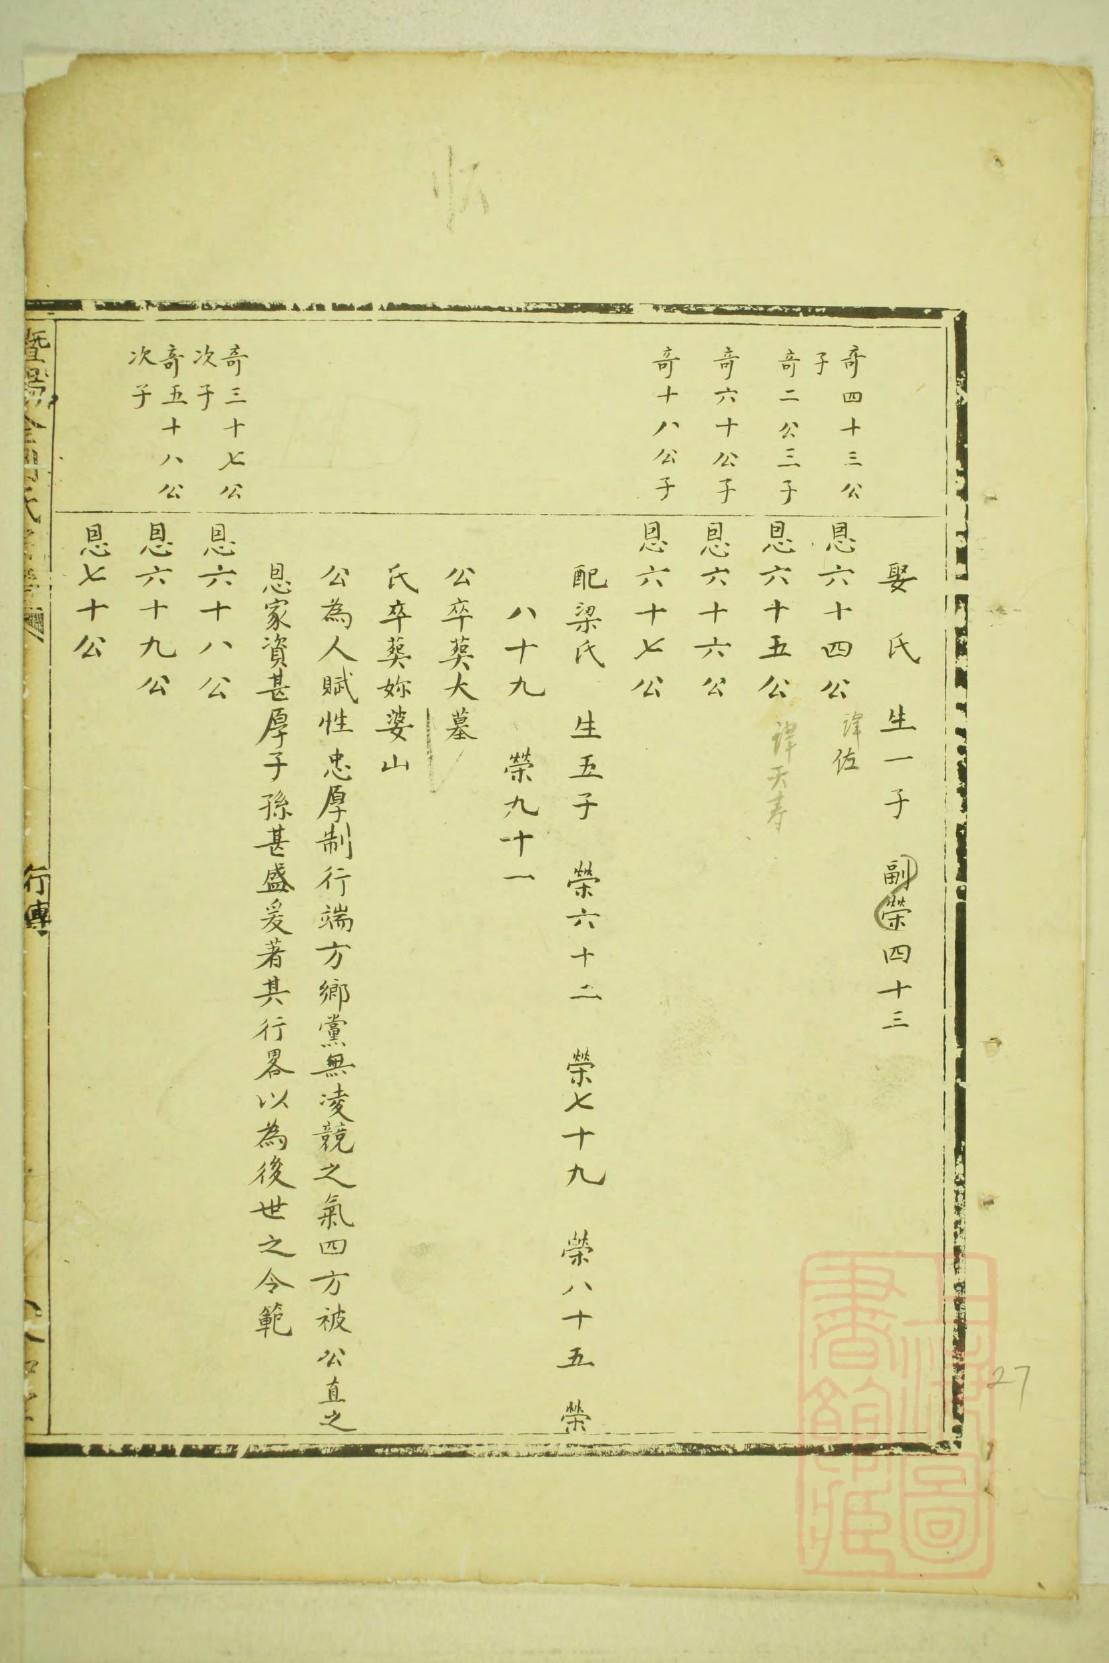 娶　氏　生一子　副榮四十三
奇四十三公
子
恩六十四公　諱佐
奇二公三子
恩六十五公　諱天壽
奇六十公子
恩六十六公
奇十八公子
恩六十七公
配梁氏　生五子　榮六十二　榮七十九　榮八十五　榮
八十九　榮九十一
公卒葬大墓
氏卒葬妳婆山
公為人賦性忠厚制行端方鄉黨無凌競之氣四方被公直之
恩家資甚厚子孫甚盛爰著其行畧以為後世之令範
奇三十七公
次子
恩六十八公
奇五十八公
次子
恩六十九公
恩七十公
行傳
27
上海圖
書館藏